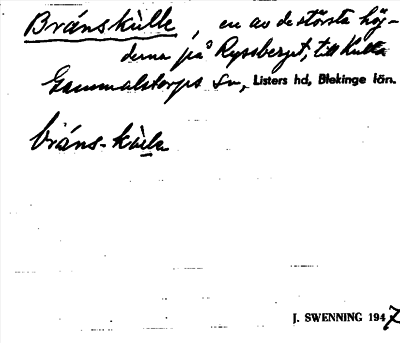 Bránskùlle, en av de största höj-
derna på Ryssberget, till
Gammalstorps sn, Listers hd, Blekinge län.
bráns-kùlla
J. SWENNING 1947